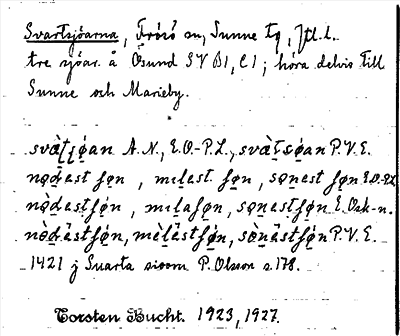 Svartsjöarna, Frösö sn, Sunne tg, Jtl. l.
tre sjöar å Ösund SV B1, C1; höra delvis till
Sunne och Marieby.
svàʈʂǫ́an A.N., E.O.-P.L., svàʈsǫ́an P.V.E.
nǫdest ʃǫn, mɩlest ʃǫn, sǫnest ʃǫn E.O.-P.L.
nǫ̀destʃǫn, mɩlaʃǫn, sǫnestʃǫn E.Osk-n.
nǫ̀dèstʃǫ́n, mèlèstʃǫ́n, sǫ̀nèstʃǫ́n P.V.E.
1421 j Suarta P. Olsson s. 178.
Torsten Bucht. 1923, 1927.